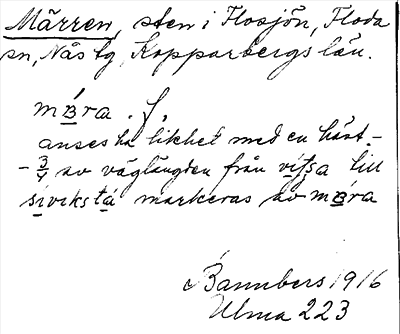 Märren, sten i Flosjön, Floda
sn, Nås tg, Kopparbergs län.
mɞra. f.
anses ha likhet med en häst.-
- 3/4 av väglängden från vitsa till
siviksta markeras av mɞra
Bannbers 1916
Ulma 223